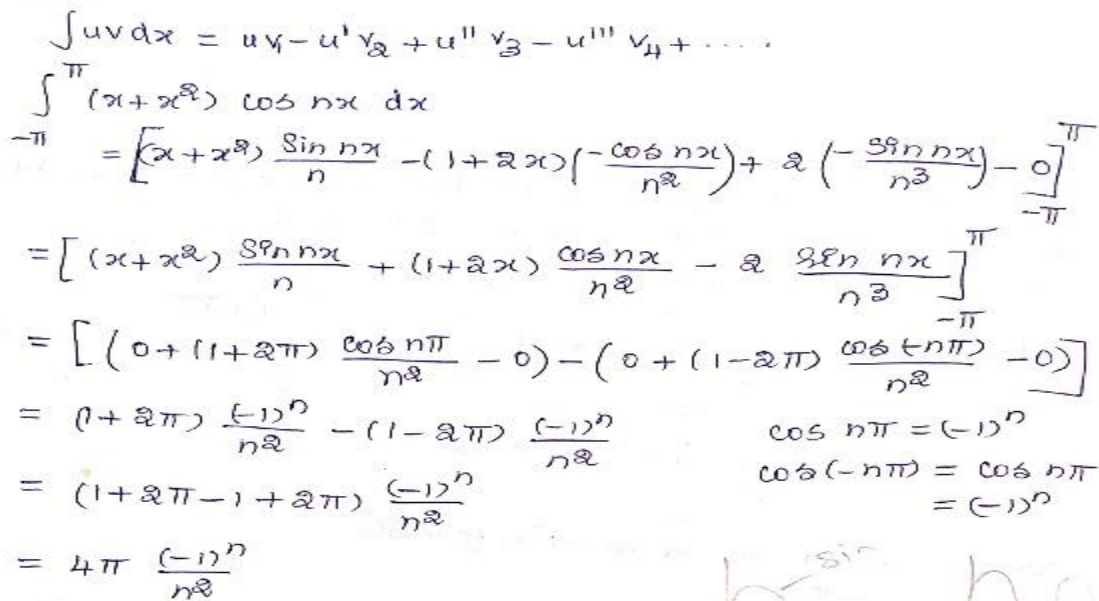 ∫uv dx = uv₁ - u' v₂ + u'' v₃ - u''' v₄ + .....
∫_{-π}^{π} (x+x²) cos nx dx
= [(x+x²) Sin nx/n - (1+2x) (-cos nx/n²) + 2 (-Sin nx/n³) - 0]_{-π}^{π}
= [(x+x²) Sin nx/n + (1+2x) cos nx/n² - 2 Sin nx/n³]_{-π}^{π}
= [(0+(1+2π) cos nπ/n² - 0) - (0+(1-2π) cos(-nπ)/n² - 0)]
= (1+2π) (-1)ⁿ/n² - (1-2π) (-1)ⁿ/n² cos nπ = (-1)ⁿ
cos(-nπ) = cos nπ
= (1+2π-1+2π) (-1)ⁿ/n² = (-1)ⁿ
= 4π (-1)ⁿ/n²
sin